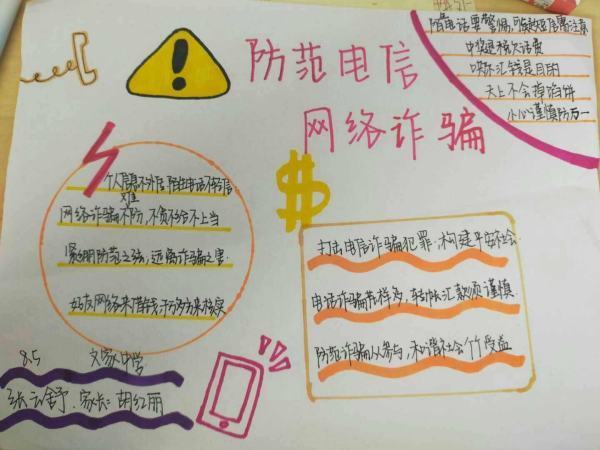 防范电信
网络诈骗
陌生电话要警惕,可疑短信需注意
中奖是骗欠话费
哄你汇钱是目的
天上不会掉馅饼
小心谨慎防万一
个人信息不外信 陌生电话不轻信
网络诈骗难不防,不贪不给不上当
紧绷防范之弦,远离诈骗之害
好友网络来借钱,千万多方来核实
打击电信诈骗犯罪·构建平安社会
电话诈骗花样多,转帐汇款须谨慎
防范诈骗从参与,和谐社会 受益
8.5 文家中学
张云舒.家长:胡红丽